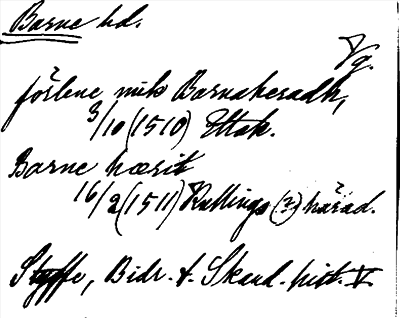 Barne hd.
Vg.
förlene mik Barnaheradh,
3/10 (1510) Ettak.
Barne hærit
16/2 (1511) Kullings (?) härad.
Styffe, Bidr. t. Skand. hist. V.